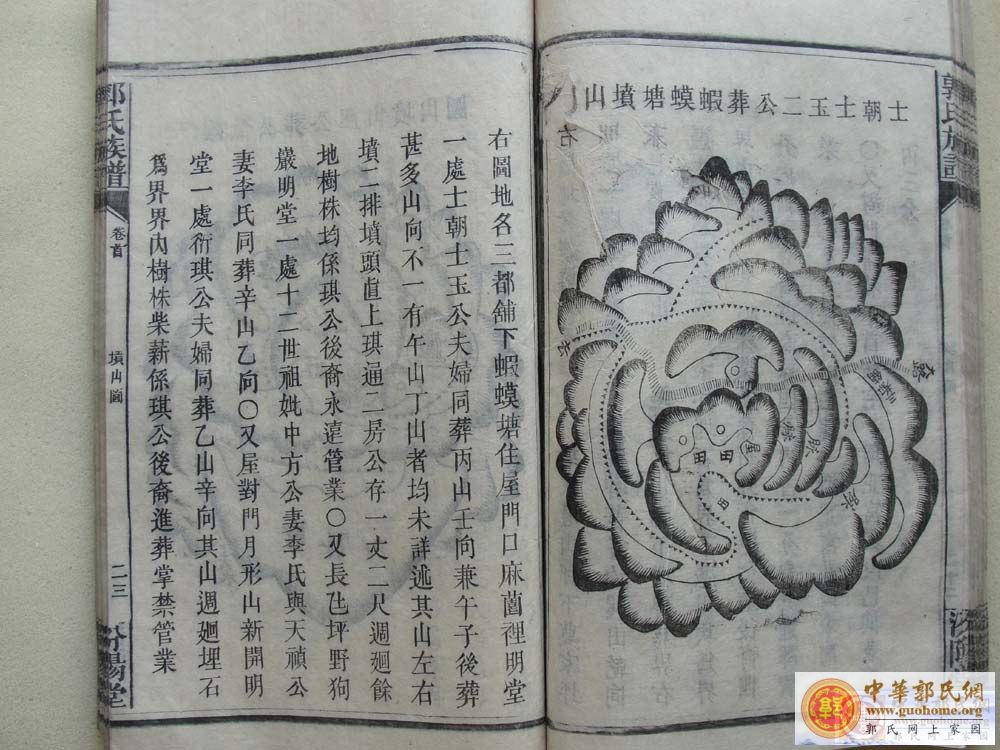 士朝士玉二公葬蝦蟆塘墳山
右
蘇
屋
田
田
田
郭氏族譜
右圖地各三都舖下蝦蟆塘住屋門口麻薗裡明堂
一處士朝士玉公夫婦同葬丙山壬向兼午子後葬
甚多山向不一有午山丁山者均未詳述其山左右
墳二排墳頭直上琪通二房公存一丈二尺週廻餘
地樹株均係琪公後裔永遠管業〇又長㘰坪野狗
巖明堂一處十二世祖妣中方公妻李氏與天禎公
妻李氏同葬辛山乙向〇又屋對門月形山新開明
堂一處衍琪公夫婦同葬乙山辛向其山週廻埋石
為界界內樹株柴薪係琪公後裔進葬掌禁管業
郭氏族譜
卷首
墳山圖
二三
汾陽堂
中華郭氏網
www.guohome.org
郭氏網上家园